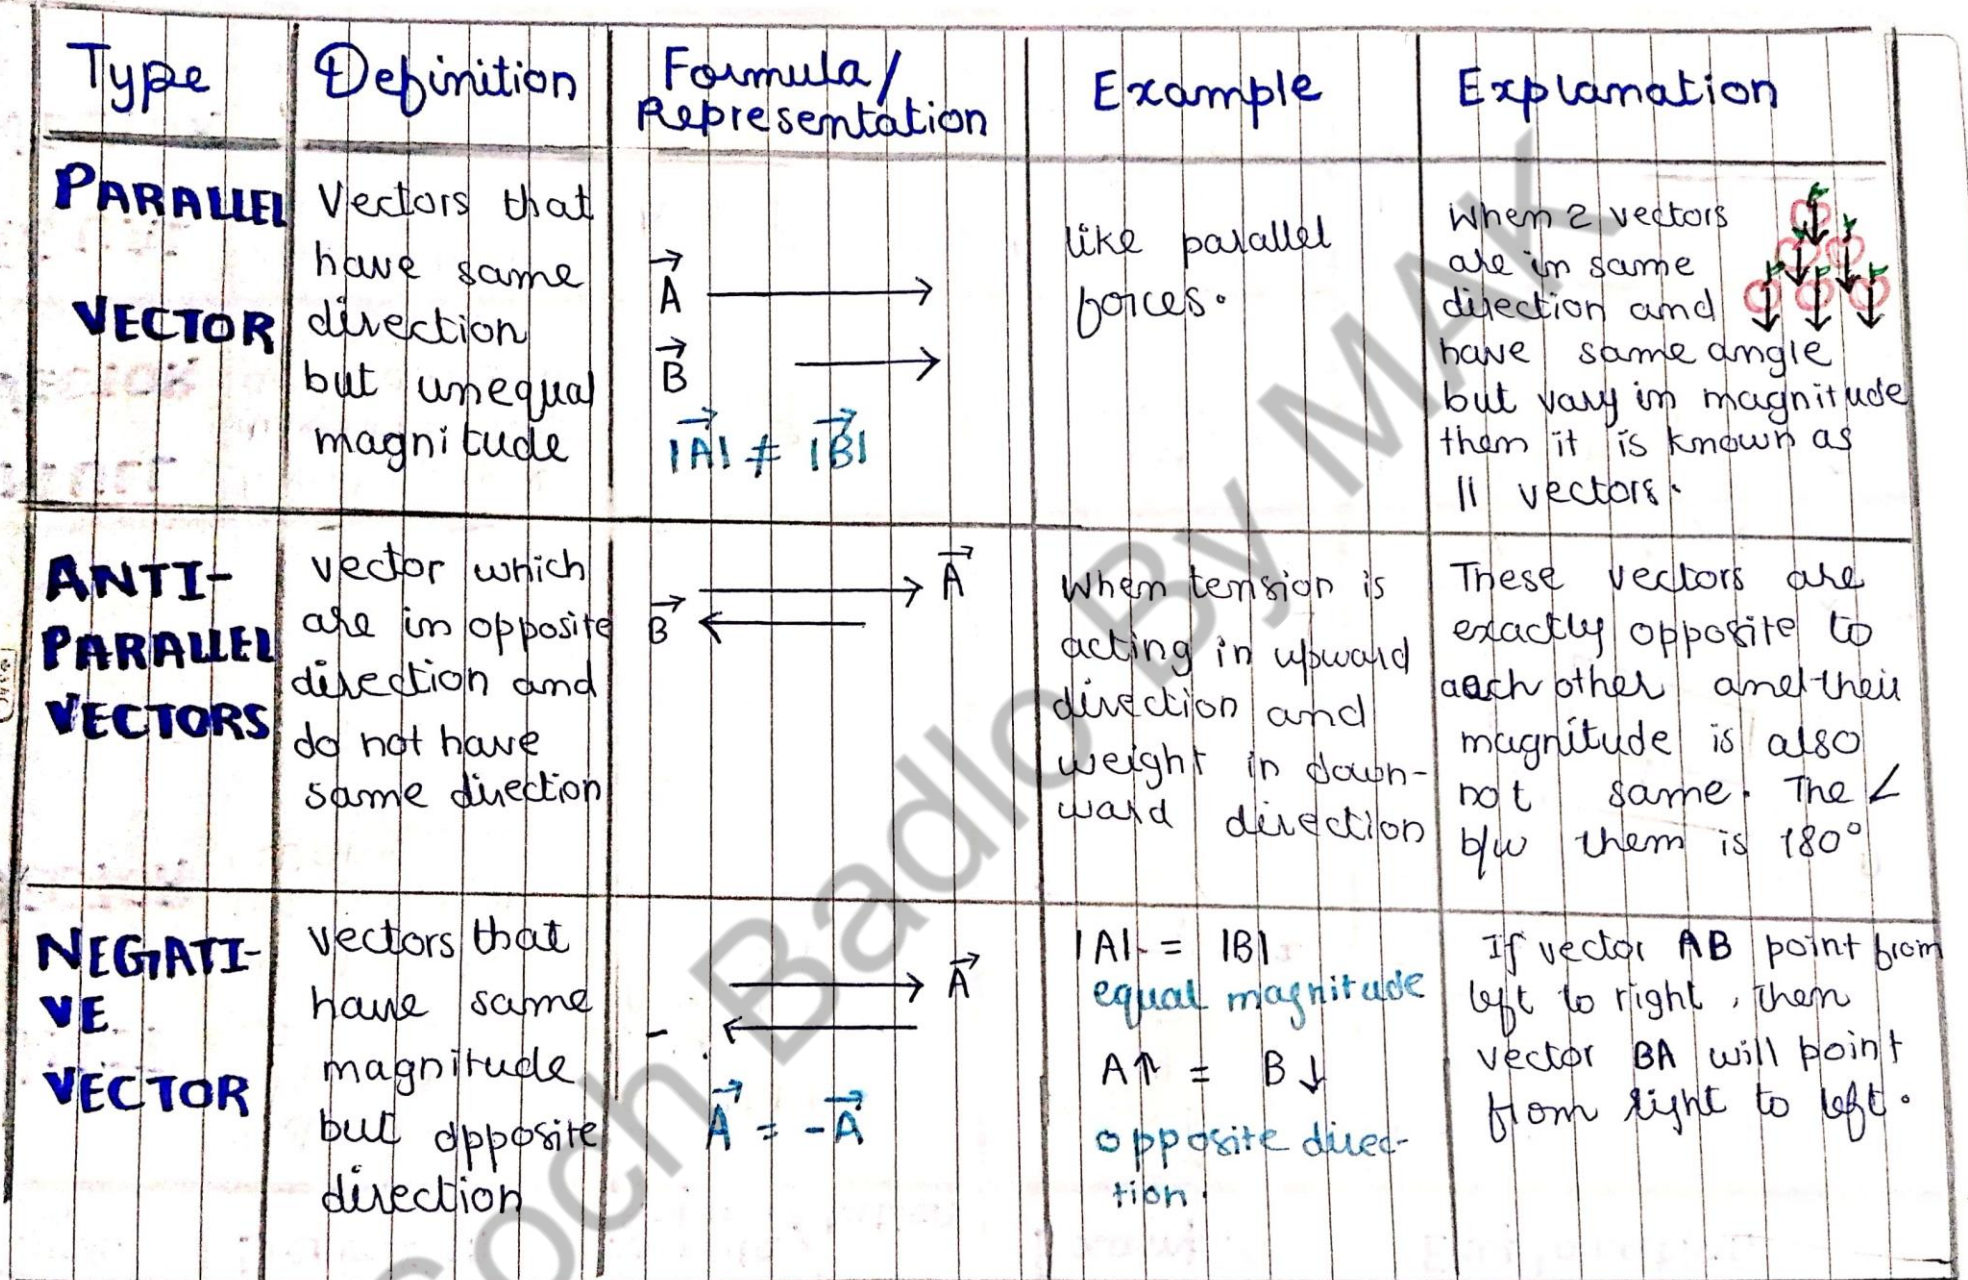 Type
Definition
Formula/
Representation
Example
Explanation
PARALLEL
VECTOR
Vectors that
have same
direction
but unequal
magnitude
A
B
|A| ≠ |B|
like parallel
forces.
When 2 vectors
are in same
direction and
have same angle
but vary in magnitude
then it is known as
|| vectors.
ANTI-
PARALLEL
VECTORS
vector which
are in opposite
direction and
do not have
same direction
A
B
When tension is
acting in upward
direction and
weight in down-
ward direction
These vectors are
exactly opposite to
each other and their
magnitude is also
not same. The ∠
b/w them is 180°
NEGATI-
VE
VECTOR
vectors that
have same
magnitude
but opposite
direction
A
-
A = -A
|A| = |B|
equal magnitude
A↑ = B↓
opposite direc-
tion.
If vector AB point from
left to right, then
vector BA will point
from right to left.
Soch Badlo By MAK